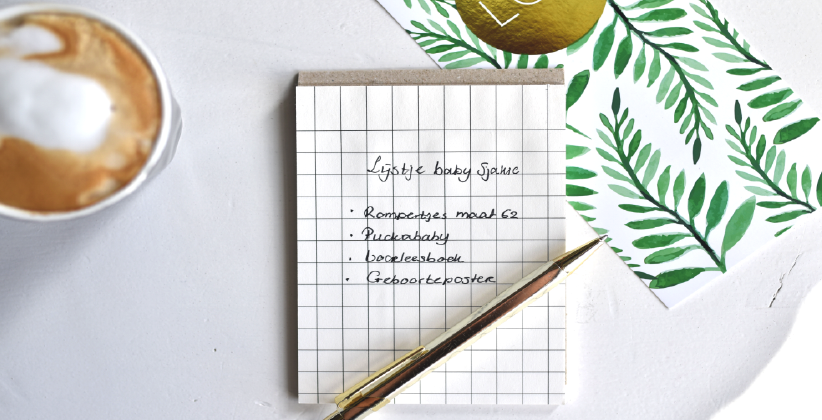 LO
Lijstje baby Sjanic
• Rompertjes maat 62
• Puckababy
• Voorleesboek
• Geboorteposter